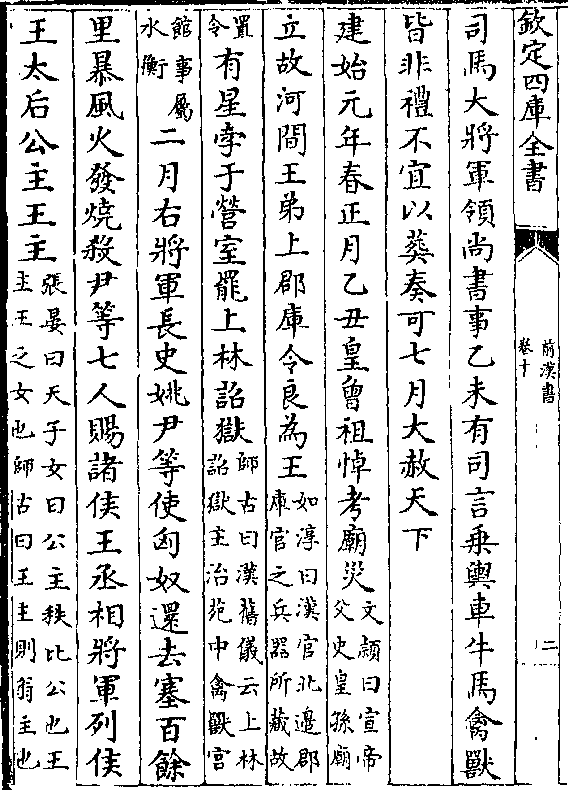 欽定四庫全書
前漢書
卷十
二
司馬大將軍領尚書事乙未有司言乗輿車牛馬禽獸
皆非禮不宜以葬奏可七月大赦天下
建始元年春正月乙丑皇曾祖悼考廟災文頴曰宣帝父史皇孫廟
立故河間王弟上郡庫令良為王如淳曰漢官北邉郡庫官之兵器所藏故
置令有星孛于營室罷上林詔獄師古曰漢舊儀云上林詔獄主治苑中禽獸宫
館事屬水衡二月右將軍長史姚尹等使匈奴還去塞百餘
里暴風火發燒殺尹等七人賜諸侯王丞相將軍列侯
王太后公主王主張晏曰天子女曰公主秩比公也王主王之女也師古曰王主則翁主也